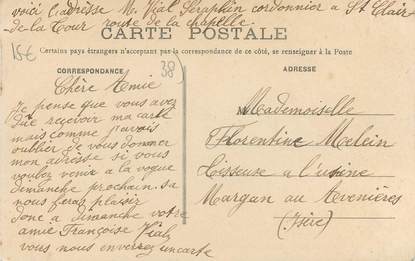 voici l'adresse M. Vial Séraphin cordonnier à St Clair
de la Tour route de la chapelle.
CARTE POSTALE
15€
Certains pays étrangers n'acceptant par la correspondance de ce côté, se renseigner à la Poste
38)
CORRESPONDANCE
Chère Amie
Je pense que vous avez
dûe recevoir ma carte
mais comme j'avais
oublier de vous donner
mon adresse si vous
voulez venir a la vogue
dimanche prochain. sa
nous feras plaisir
donc a dimanche votre
amie Françoise Vial
vous nous enverrez une carte
ADRESSE
Mademoiselle
Florentine Melein
Tisseuse a l'usine
Margan au Avenières
(Isère)